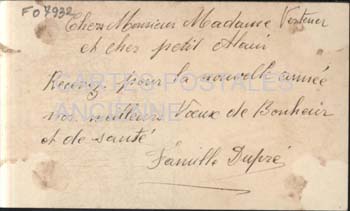 FO 7932
Chers Monsieur Madame
et cher petit Alain
Recevez pour la nouvelle année
nos meilleurs Vœux de Bonheur
et de santé
Famille Dupré
CARTES POSTALES
ANCIENNES